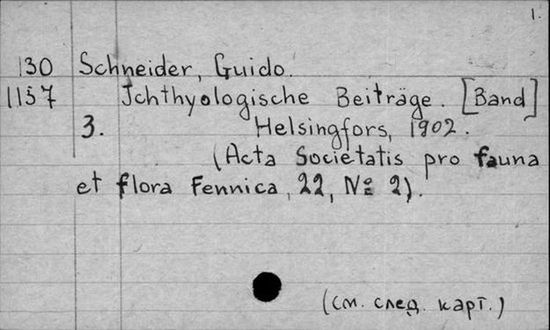 1.
130 Schneider, Guido.
1157 Ichthyologische Beiträge. [Band]
3. Helsingfors, 1902.
(Acta Societatis pro fauna
et flora Fennica, 22, № 2).
(см. след. карт.)